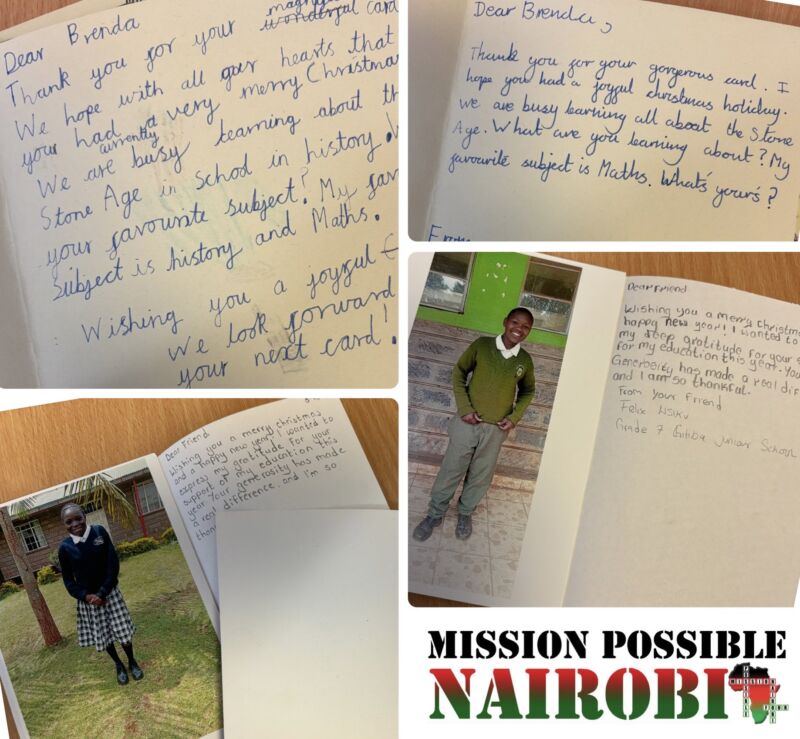 Dear Brenda
Thank you for your magni wonderful card
We hope with all your hearts that
your had a very merry Christma
We are currently busy learning about th
Stone Age in School in history. W
your favourite subject? My fav
subject is history and Maths.
Wishing you a joyful
We look forward
your next card!
Dear Brenda,
Thank you for your gorgerous card. I
hope you had a joyful christmas holiday.
we are busy learning all about the Stone
Age. What are you learning about? My
favourite subject is Maths. What's your's?
From
Dear Friend
Wishing you a merry Christm
happy new year! I wanted to
my deep gratitude for your s
for my education this year. You
Generosity has made a real dif
and I am so thankful.
From your Friend
Felix
Grade 7 Junior School
Dear Friend
Wishing you a merry christmas
and a happy new year, I wanted to
express my gratitude for your
support of my education this
year. Your generosity has made
a real difference and I'm so
than
MISSION POSSIBLE
NAIROBI